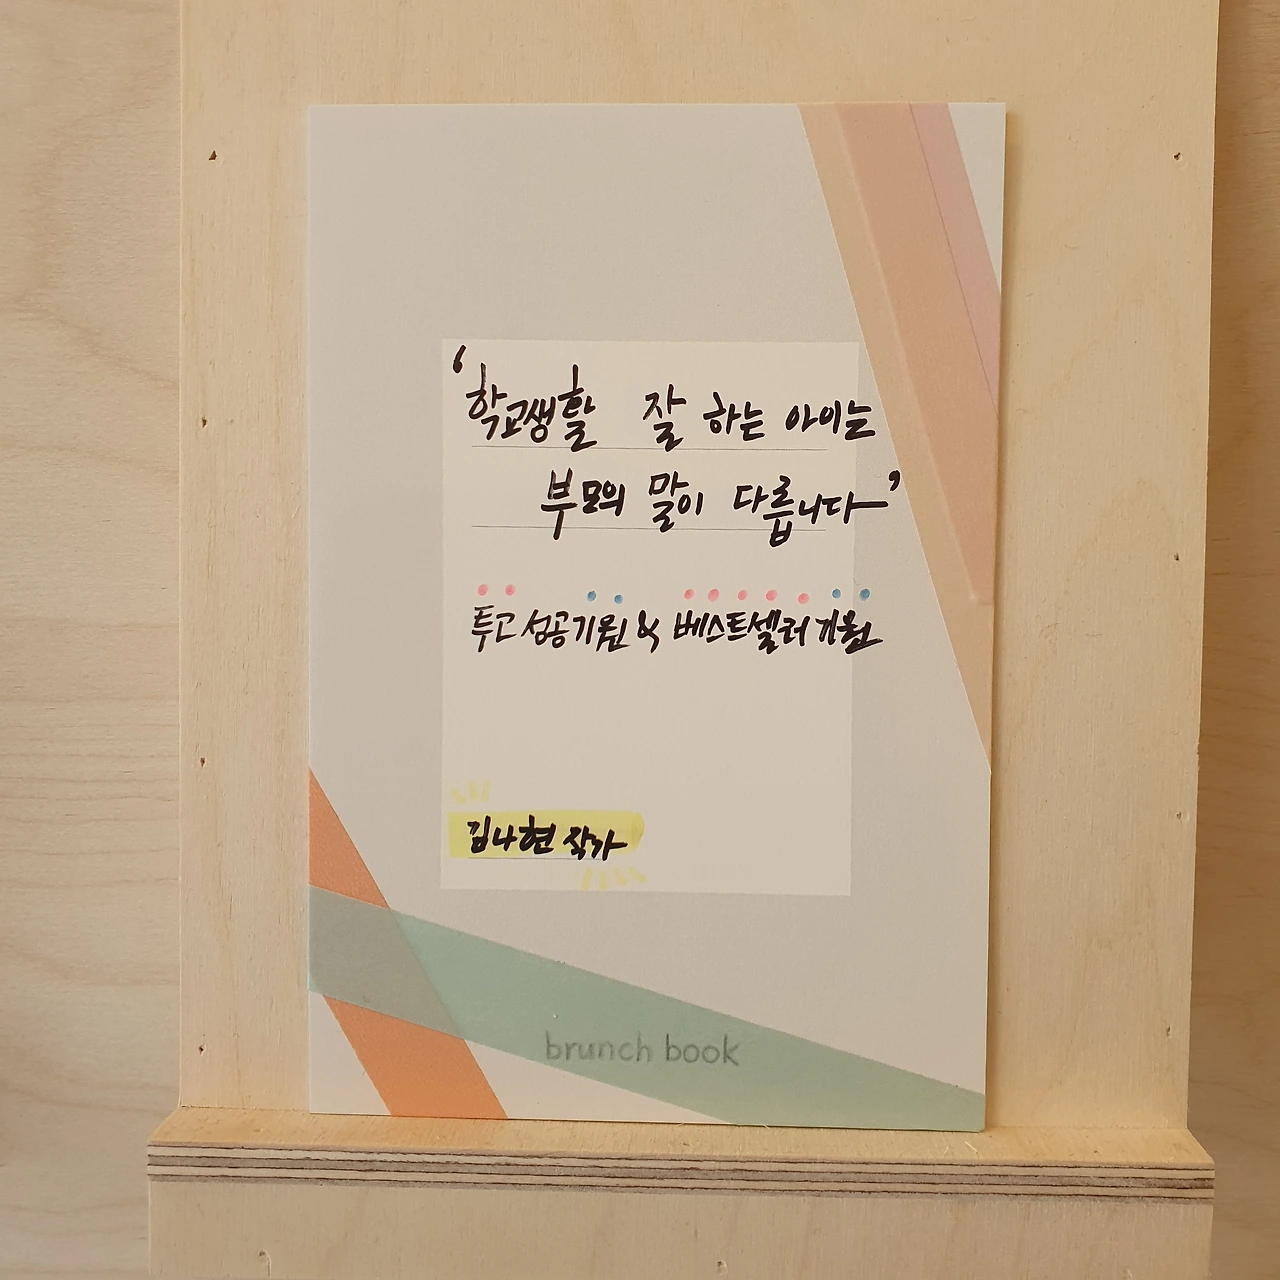 ‘학교생활 잘 하는 아이는
부모의 말이 다릅니다’
투고 성공기원 & 베스트셀러 기원
김나현 작가
brunch book